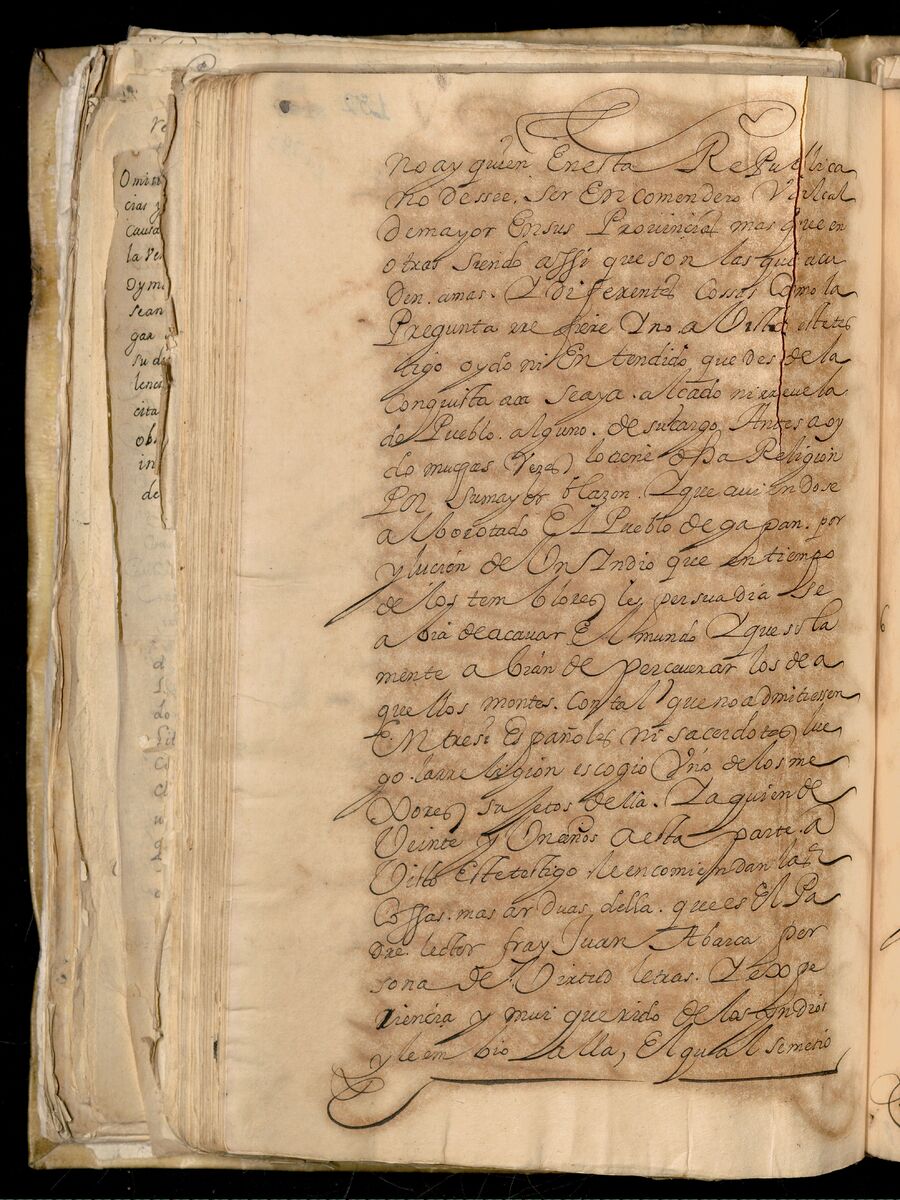 no ay quien En esta RePublica
no dessee. ser En comendero Vi Real
De mayor En sus Prouincias mas que en
otras siendo assi que son las que acu
den. a mas. Y diferentes Cossas Como la
Pregunta rre fiere Y no a Visto este tes
tigo oydo ni En tendido que des de la
Conquista aca se aya. alcado ni rreuela
do Pueblo. alguno. de su cargo. Antes a oy
do muchas Vezes lo tiene dha Religion
Por su mayor blazon. Y que auiendo se
alborotado El Pueblo de gapan. por
ylucion de Un Indio que en tiempo
de los tem blores les persuadia Se
abia de acauar El mundo Y que sola
mente a bian de perceuerar los de a
quellos montes. Con tal que no admitiessen
Entre si Españoles ni sacerdotes lue
go. la rreligion escogio Vno de los me
Xores su jetos della. Y a quien de
Veinte y Un años a esta parte. a
Visto Este testigo se encomiendan las
Cossas. mas ar duas. della. que es El Pa
dre. lector fray Juan Abarca per
sona de Virtud letras. Y exxpe
riencia y mui querido de los Indios
y le em bio alla, El qual se metio
Omiss
cias y
Causa
la Ve
su d
cita
ob.
in
de